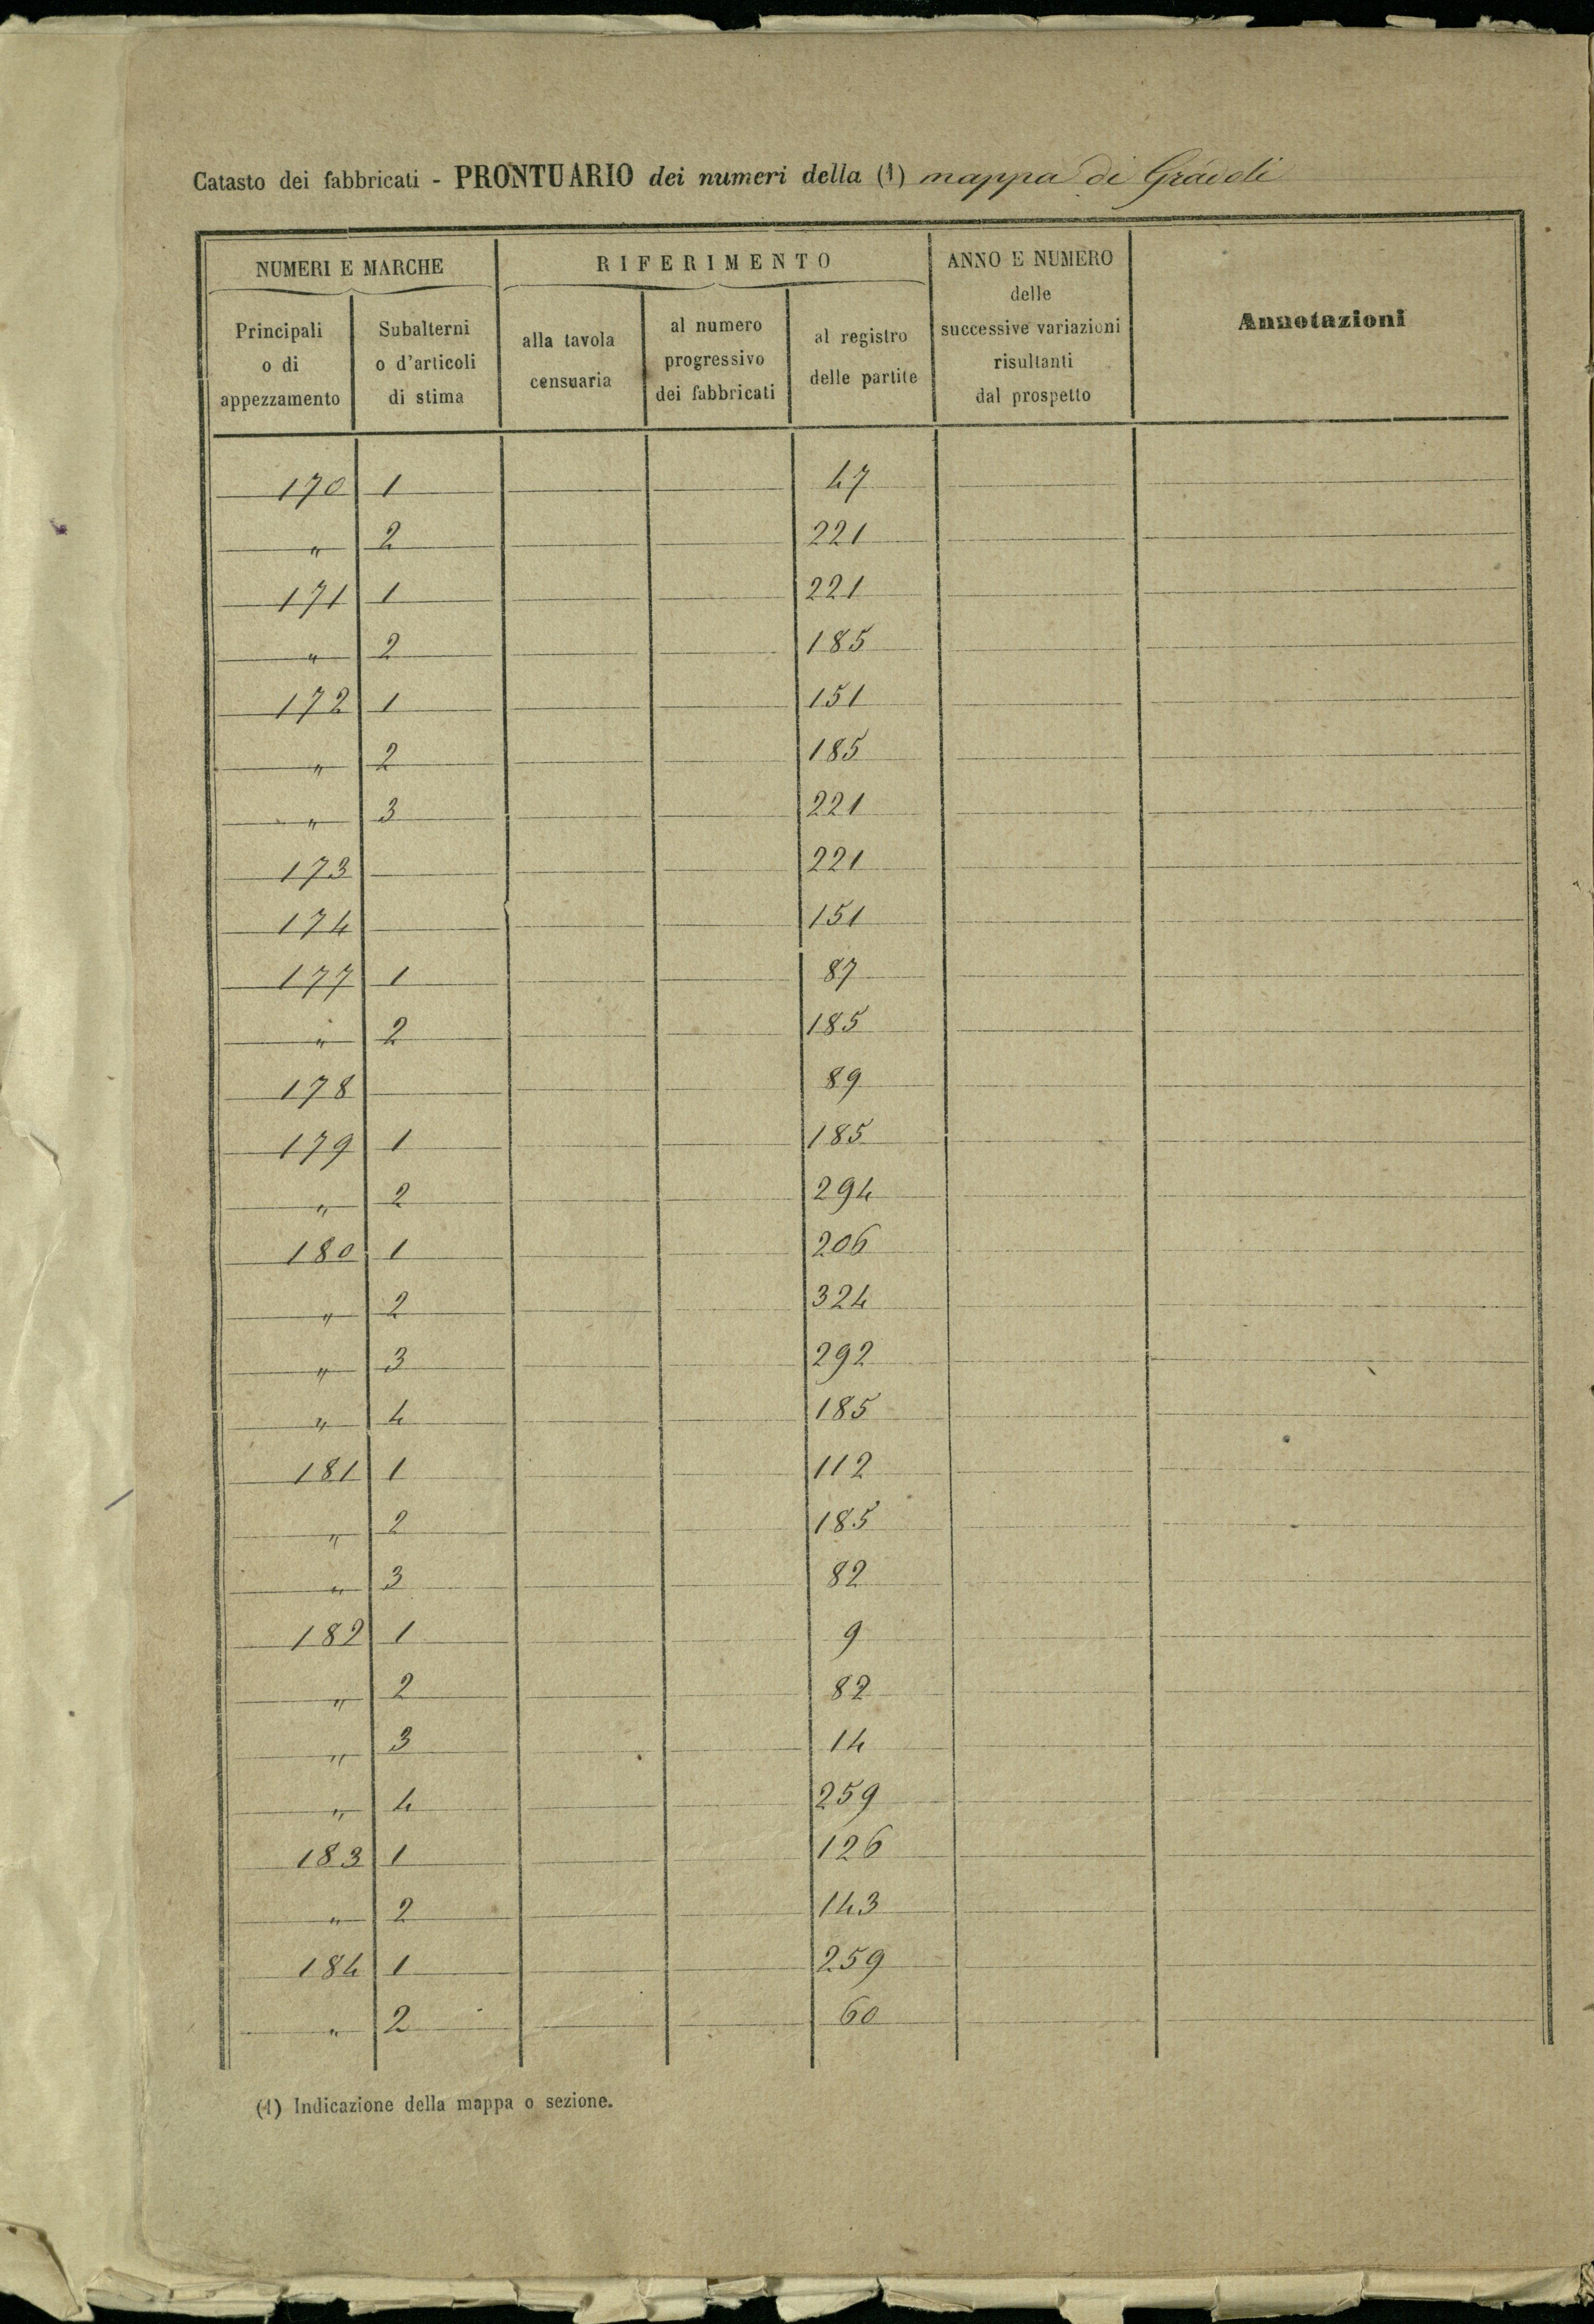 Catasto dei fabbricati - PRONTUARIO dei numeri della (1) mappa di
NUMERI E MARCHE RIFERIMENTO ANNO E NUMERO delle successive variazioni risultanti dal prospetto Annotazioni
Principali o di appezzamento Subalterni o d'articoli di stima alla tavola censuaria al numero progressivo dei fabbricati al registro delle partite
170 1 47
" 2 221
171 1 221
" 2 185
172 1 151
" 2 185
" 3 221
173 221
174 151
177 1 87
" 2 185
178 89
179 1 185
" 2 294
180 1 206
" 2 324
" 3 292
" 4 185
181 1 112
" 2 185
" 3 82
182 1 9
" 2 82
" 3 14
" 4 259
183 1 126
" 2 143
184 1 259
" 2 60
(1) Indicazione della mappa o sezione.